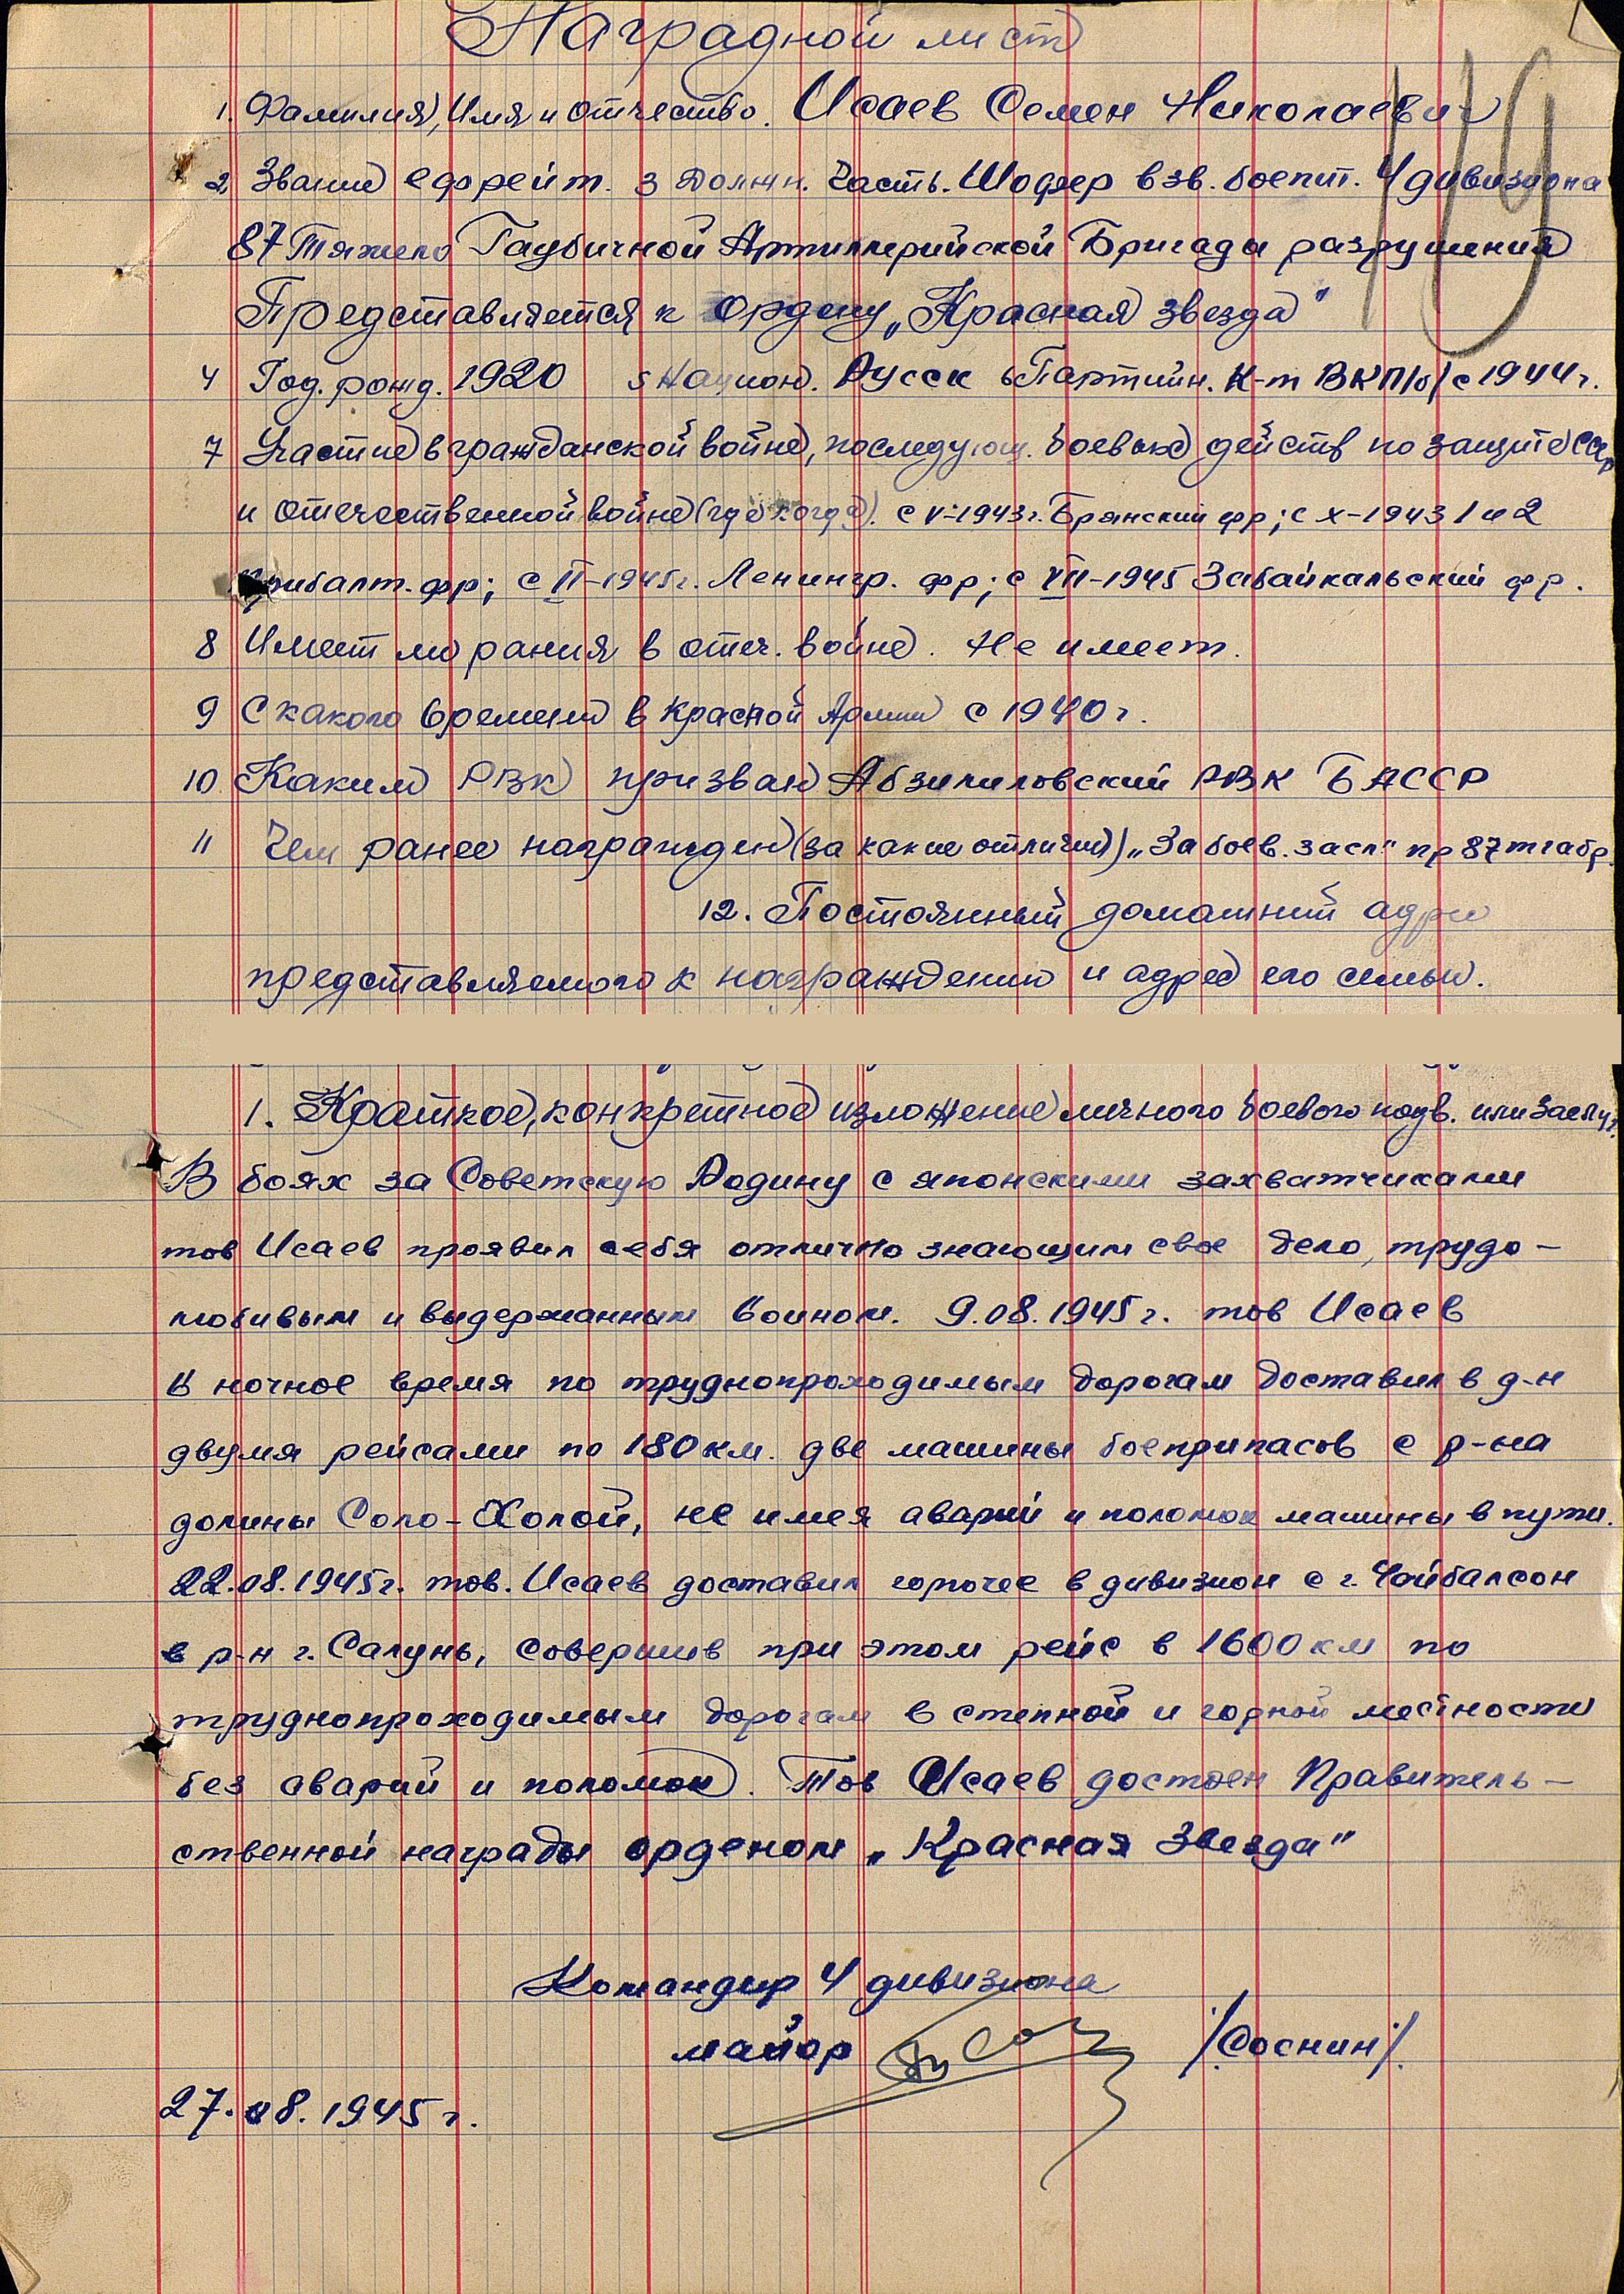 Наградной лист
1. Фамилия, Имя и отчество. Исаев Семен Николаевич
2 Звание ефрейт. 3 Должн. Часть. Шофер взв. боепит. 4 дивизиона
87 Тяжело Гаубичной Артиллерийской Бригады разрушения
Представляется к ордену „Красная звезда"
4 Год. рожд. 1920 5 Национ. Русск 6 Партийн. К-т ВКП/б/ с 1944 г.
7 Участие в гражданской войне, последующ. боевые действ по защите СССР
и отечественной войне (где когда). с V-1943 г. Брянский фр; с X-1943 1 и 2
Прибалт. фр; с II-1945 г. Ленингр. фр; с VII-1945 Забайкальский фр.
8 Имеет ли рания в отеч. войне. Не имеет.
9 С какого времени в Красной Армии с 1940 г.
10 Каким РВК призван Абзилиловский РВК БАССР
11 Чем ранее награжден (за какие отличия) „За боев. засл" пр 87 тгабр.
12. Постоянный домашний адрес
представляемого к награждению и адрес его семьи.
1. Краткое, конкретное изложение личного боевого подв. или заслуг.
В боях за Советскую Родину с японскими захватчиками
тов Исаев проявил себя отлично знающим свое дело, трудо-
любивым и выдержанным воином. 9.08.1945 г. тов Исаев
в ночное время по труднопроходимым дорогам доставил в д-н
двумя рейсами по 180 км. две машины боеприпасов с р-на
долины Соло-Холой, не имея аварий и поломок машины в пути.
22.08.1945 г. тов. Исаев доставил горючее в дивизион с г. Чойбалсон
в р-н г. Салунь, совершив при этом рейс в 1600 км по
труднопроходимым дорогам в степной и горной местности
без аварий и поломок. Тов Исаев достоен Правитель-
ственной награды орденом „Красная Звезда"
Командир 4 дивизиона
майор /Соснин/.
27.08.1945 г.
119